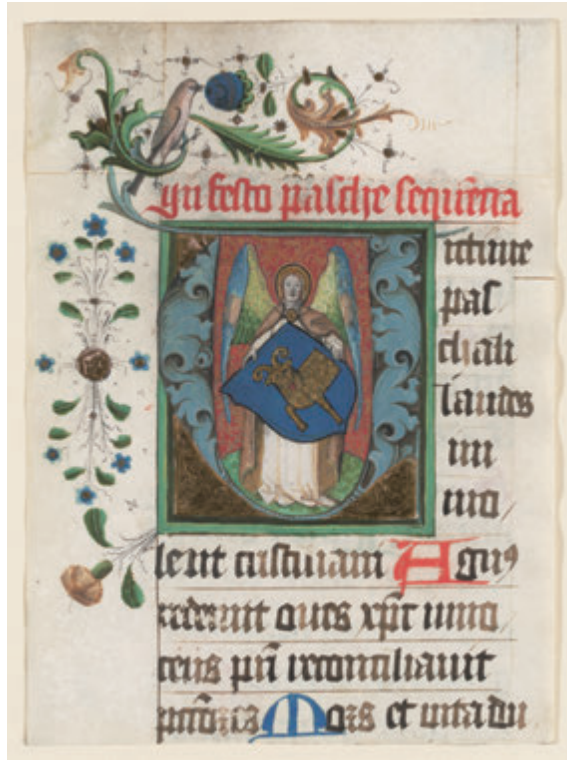 In festo pasche sequēcia
Uictime
pas
chali
laudes
im
mo
lent cristiani Agnꝰ
redemit oues xp̄c inno
cens pr̄i reconciliauit
pctōres Mors et uita du